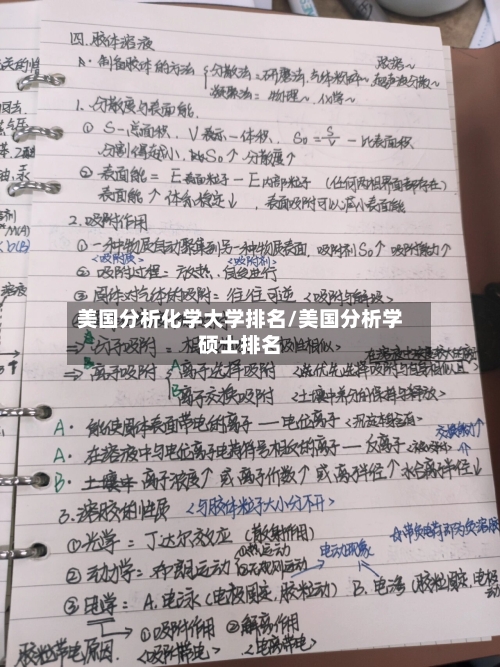 四.胶体溶液
A.制备胶体的方法 分散法:研磨法、气体粉碎~ 超声波分散~
胶溶~
凝聚法:物理~ 化学~
1.分散度与表面能.
① S-总面积. V表示一体积. S₀=S/V-比表面积
分割得越小,比S₀↑分散度↑
② 表面能=E表面粒子-E内部粒子(任何两相界面都存在)
表面能↑体系稳定↓,表面吸附可以减小表面能
2.吸附作用
①一种物质自动聚集到另一种物质表面.吸附剂S₀↑吸附能力↑
<吸附质> <吸附剂>
②吸附过程=放热,自发进行
③固体对气体的吸附=往往可逆<吸附与解吸>
美国分析化学大学排名/美国分析学
硕士排名
→分子吸附
→离子吸附 A离子选择吸附
B离子交换吸附<土壤中养分的保持与释放>
A.能使固体表面带电的离子—电位离子
A.在溶液中与电位离子电荷符号相反的离子—反离子
交换能力↑
B.土壤中离子浓度↑或离子价数↑或离子半径↑水合离子半径↓
3.溶胶的性质<与胶体粒子大小分不开>
①光学:丁达尔效应(散射作用)
②动力学:布朗运动
电动现象
③电学:A.电泳(电极固定,胶粒动) B.电渗(胶粒固定,电极动)
胶粒带电原因. ①吸附作用 ②解离作用
<吸附带电> <电离带电>